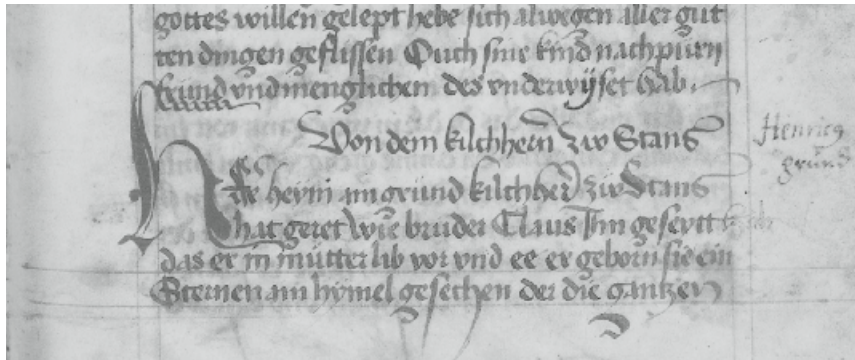 gottes willen gelept hebe sich alwegen aller gut
ten dingen geflissen Ouch sine kind nachpurn
frund vnd menglichem des vnderwÿset hab.
Von dem kilchhern zw Stans
heyni am grund kilchher zw Stans
Henricus
grund
hat geret wie bruder Claus Im geseytt
das er in mutter lib vor vnd ee er geborn sie ein
Sternen am hymel gesechen der die gantzen